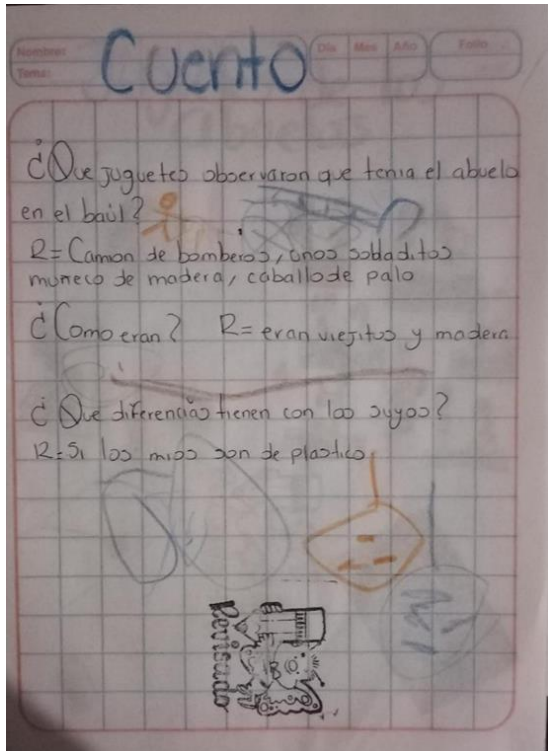 Nombre:
Cuento
Día Mes Año
Folio
Tema:
¿Que juguetes observaron que tenia el abuelo
en el baúl?
R= Camon de bomberos, unos soldaditos
muñeco de madera, caballo de palo
¿Como eran? R= eran viejitos y madera
¿Que diferencias tienen con los suyos?
R= Si los mios son de plastico
Revisado